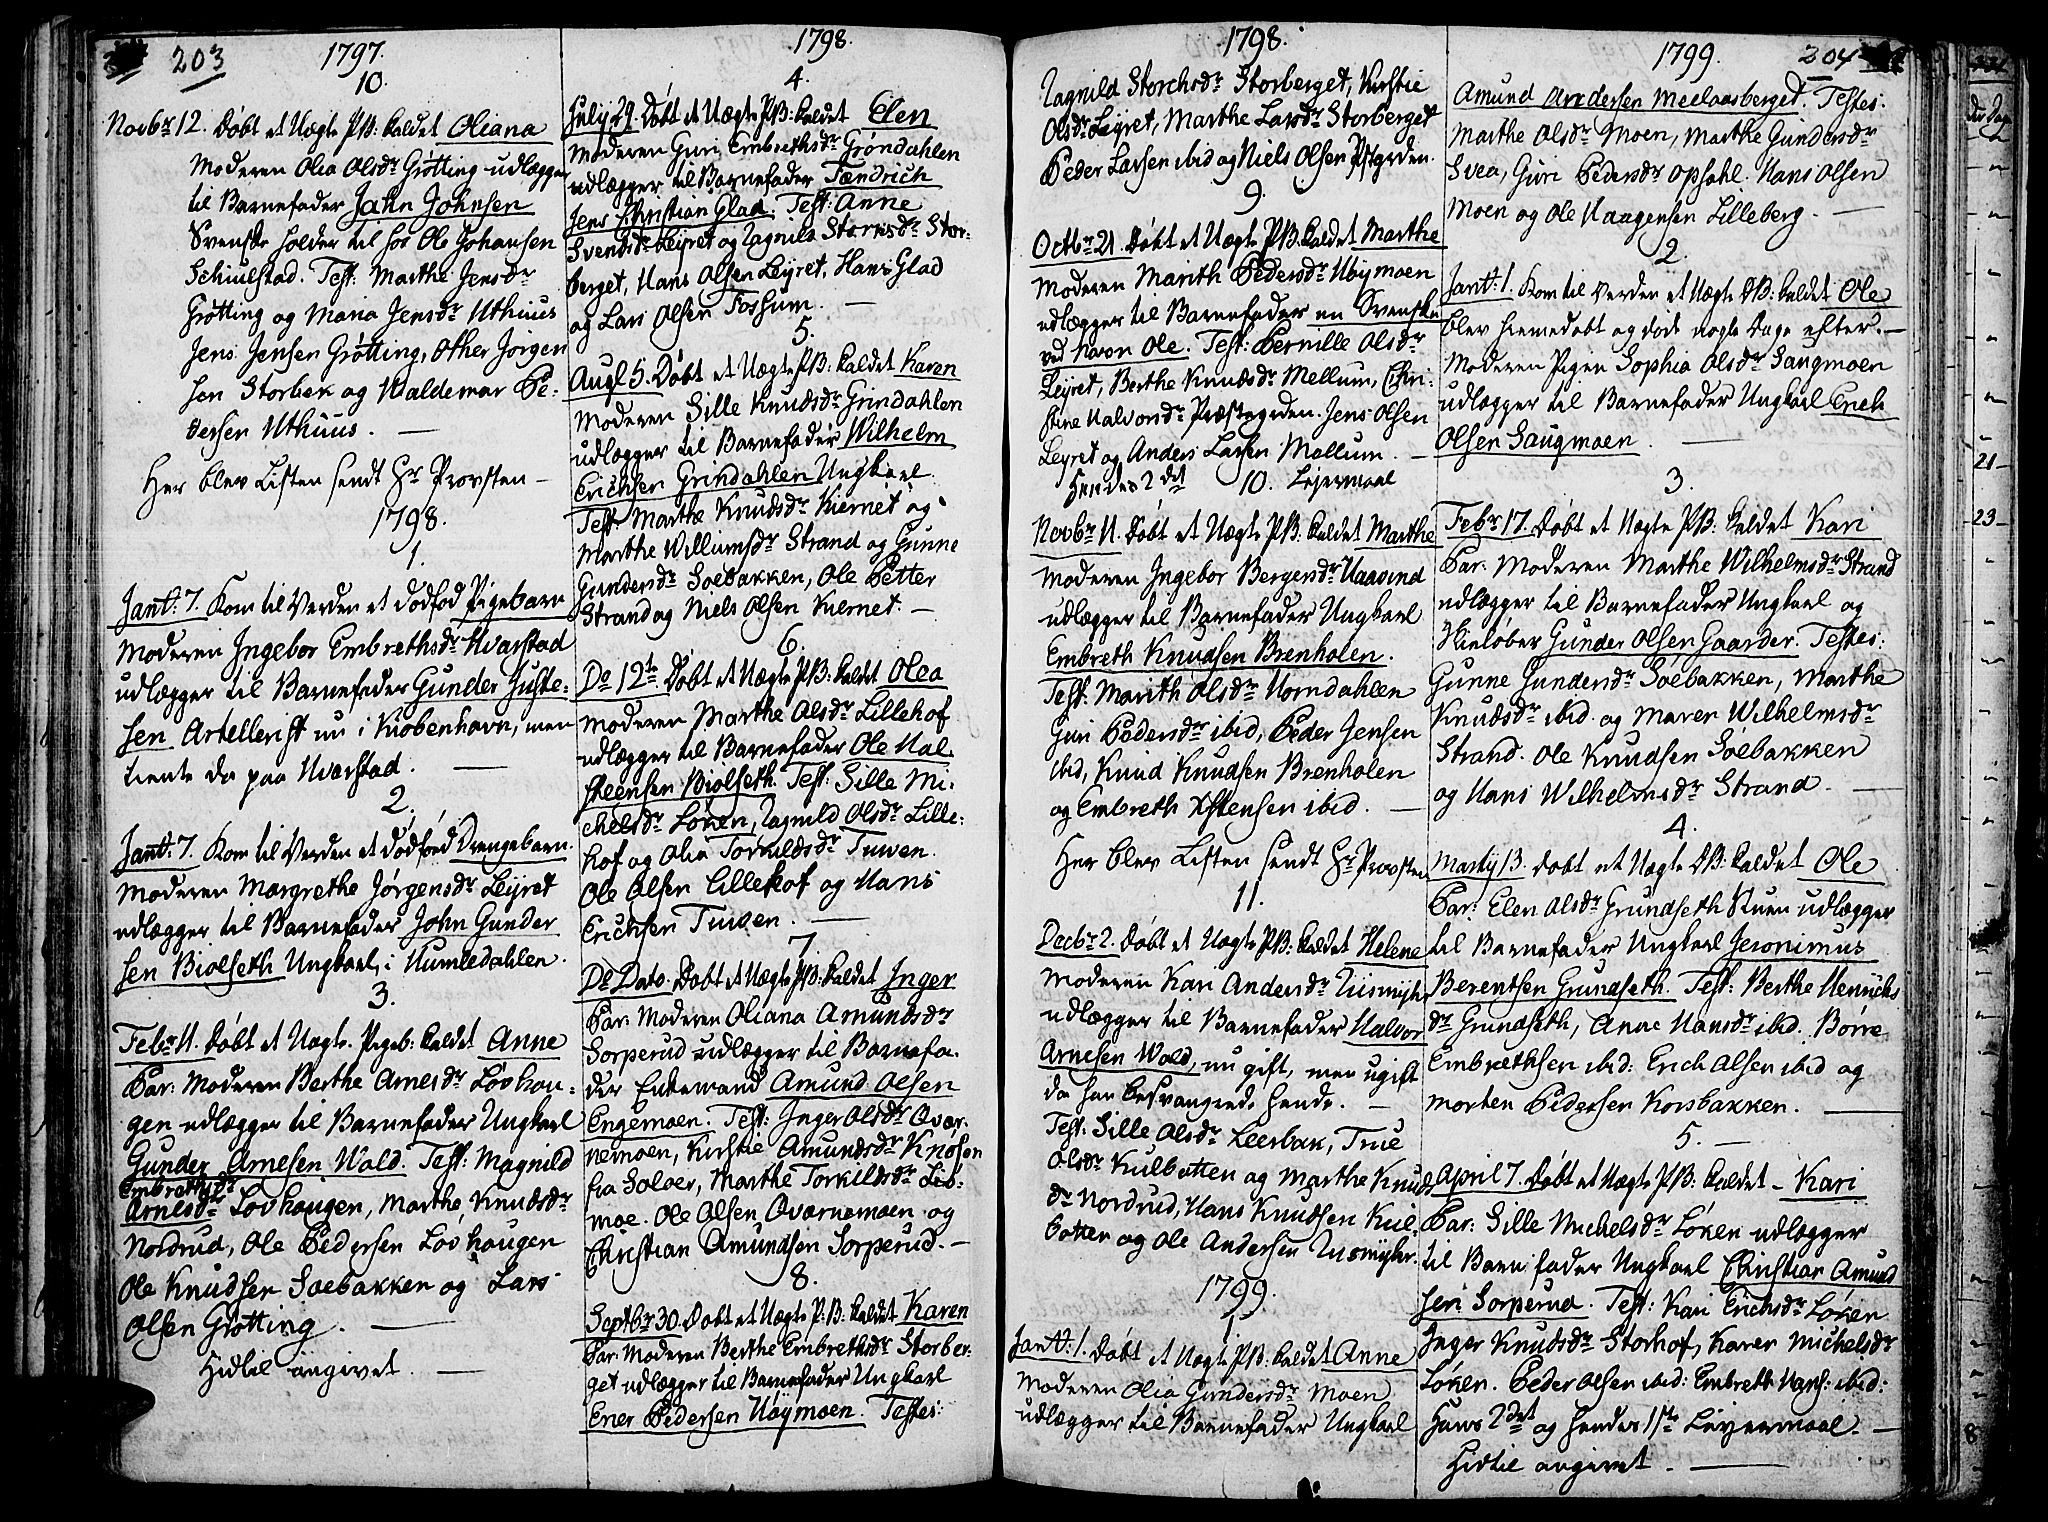 203
1797.
10.
Novbr 12. Døbt et Uægte PB: kaldet Oliana
Moderen Olia Olsdr Grøtting udlægger
til Barnefader Jahn Johnsen
Svensk holder til hos Ole Johansen
Schiulstad. Test: Marthe Jensdr
Grøtting og Maria Jensdr Uthuus
Jens Jensen Grøtting, Other Jørgen
sen Storbek og Waldemar Pe-
dersen Uthuus.
Her blev Listen sendt Hr Provsten
1798.
1.
Jant: 7. Kom til Verden et dødfød Pigebarn
Moderen Ingebor Embrethsdr Hvarstad
udlægger til Barnefader Gunder Juste-
sen Artellerist nu i Kiøbenhavn, men
tiente da paa Hvarstad.
2.
Jant: 7. Kom til Verden et dødfød Drengebarn
Moderen Margrethe Jørgensdr Leyret
udlægger til Barnefader John Gunder
sen Biølseth Ungkarl, i Humledahlen.
3.
Febr 11. Døbt et Uægte Pigeb: kaldet Anne
Par: Moderen Berthe Arnesdr Løvhou-
gen udlægger til Barnefader Ungkarl
Gunder Arnesen Wold. Test: Magnild
Embrethsdr
Arnesdr Løvhougen, Marthe Knudsdr
Nordrud, Ole Pedersen Løvhougen
Ole Knudsen Søebakken og Lars
Olsen Grøtting.
Hidtil angivet.
1798.
4.
July 29. Døbt et Uægte PB: kaldet Elen
Moderen Guri Embrethsdr Grøndahlen
udlægger til Barnefader Fændrich
Jens Christian Glad. Test: Anne
Svendsdr Leyret og Ragnild Storchsdr Stor-
berget, Hans Olsen Leyret, Hans Glad
og Lars Olsen Fossum.
5.
Augl 5. Døbt et Uægte PB: kaldet Karen
Moderen Sille Knudsdr Grindahlen
udlægger til Barnefader Wilhelm
Erichsen Grindahlen Ungkarl.
Test: Marthe Knudsdr Kiernet og
Marthe Willumsdr Strand og Gunne
Gundersdr Soebakken, Ole Petter
Strand og Niels Olsen Kiernet.
6.
Do 12te Døbt et Uægte PB: kaldet Olea
Moderen Marthe Olsdr Lillehof
udlægger til Barnefader Ole Hal-
steensen Biølseth. Test: Sille Mi-
chelsdr Løken, Ragnild Olsdr Lille-
hof og Olia Torkildsdr Tuven.
Ole Olsen Lillehof og Hans
Erichsen Tuven.
7.
Do Dato. Døbt et Uægte PB: kaldet Inger
Par: Moderen Oliana Amundsdr
Sorperud udlægger til Barnefa-
der Enkemand Amund Olsen
Engemoen. Test: Inger Olsdr Qvær-
nemoen, Kirstie Amundsdr Knøsen
fra Soloer, Marthe Torkildsdr Lib-
moe. Ole Olsen Qværnemoen og
Christian Amundsen Sorperud.
8.
Septbr 30. Døbt et Uægte PB: kaldet Karen
Par: Moderen Berthe Embrethsdr Storber-
get udlægger til Barnefader Ungkarl
Ener Pedersen Høymoen. Testes:
1798.
Ragnild Storchsdr Storberget, Kirstie
Olsdr Leyret, Marthe Larsdr Storberget
Peder Larsen ibid og Niels Olsen Pstgrden.
9.
Octbr 21. Døbt et Uægte PB: kaldet Marthe
Moderen Marith Pedersdr Høymoen
udlægger til Barnefader en Svenske
ved Navn Ole. Test: Pernille Olsdr
Leyret, Berthe Knudsdr Mellum, Chri-
stine Halvorsdr Præstegrden. Jens Olsen
Leyret og Anders Larsen Mellum.
Hendes 2det 10. Lejermaal
Novbr 11. Døbt et Uægte PB: kaldet Marthe
Moderen Ingebor Bergersdr Haavind
udlægger til Barnefader Ungkarl
Embreth Knudsen Brenholen.
Test: Marith Olsdr Horndahlen
Guri Pedersdr ibid, Peder Jensen
ibid, Knud Knudsen Brenholen
og Embreth Xstensen ibid.
Her blev Listen sendt Hr Provsten
11.
Decbr 2. Døbt et Uægte PB: kaldet Helene
Moderen Kari Andersdr Riismyhr
udlægger til Barnefader Halvor
Arnesen Wold, nu gift, men ugift
da han besvangrede hende.
Test: Sille Olsdr Leerbak, True
Olsdr Kulbotten og Marthe Knuds
dr Nordrud, Hans Knudsen Kul-
botten og Ole Andersen Riismyhr.
1799.
1.
Jant: 1. Døbt et Uægte PB: kaldet Anne
Moderen Olia Gundersdr Moen
udlægger til Barnefader Ungkarl
1799.
204
Amund Andersen Meelaasberget. Testes:
Marthe Olsdr Moen, Marthe Gundersdr
Svea, Guri Pedersdr Opsahl. Hans Olsen
Moen og Ole Haagensen Lilleberg.
2.
Jant: 1. Kom til Verden et Uægte DB: kaldet Ole
blev hiemedøbt og døde nogle Dage efter.
Moderen Pigen Sophia Olsdr Saugmoen
udlægger til Barnefader Ungkarl Erich
Olsen Saugmoen.
3.
Febr 17. Døbt et Uægte PB: kaldet Kari
Par: Moderen Marthe Wilhelmsdr Strand
udlægger til Barnefader Ungkarl og
Skieløber Gunder Olsen Gaarder. Testes:
Gunne Gundersdr Søebakken, Marthe
Knudsdr ibid. og Maren Wilhelmsdr
Strand. Ole Knudsen Søebakken
og Hans Wilhelmsdr Strand.
4.
Martij 13. Døbt et Uægte DB: kaldet Ole
Par: Elen Olsdr Grundseth Stuen udlægger
til Barnefader Ungkarl Jeronimus
Berentsen Grundseth. Test: Berthe Henrichs
dr Grundseth, Anne Hansdr ibid. Børre
Embrethsen ibid: Erich Olsen ibid og
Morten Pedersen Korsbakken.
5.
April 7. Døbt et Uægte PB: kaldet Kari
Par: Sille Michelsdr Løken udlægger
til Barnefader Ungkarl Christian Amund
sen Sorperud. Test: Kari Erichsdr Løken
Inger Knudsdr Storhof, Karen Michelsdr
Løken. Peder Olsen ibid: Embreth Hans: ibid:
Hans 2det og hendes 1ste Leyermaal.
Hidtil angivet.
21
23
8